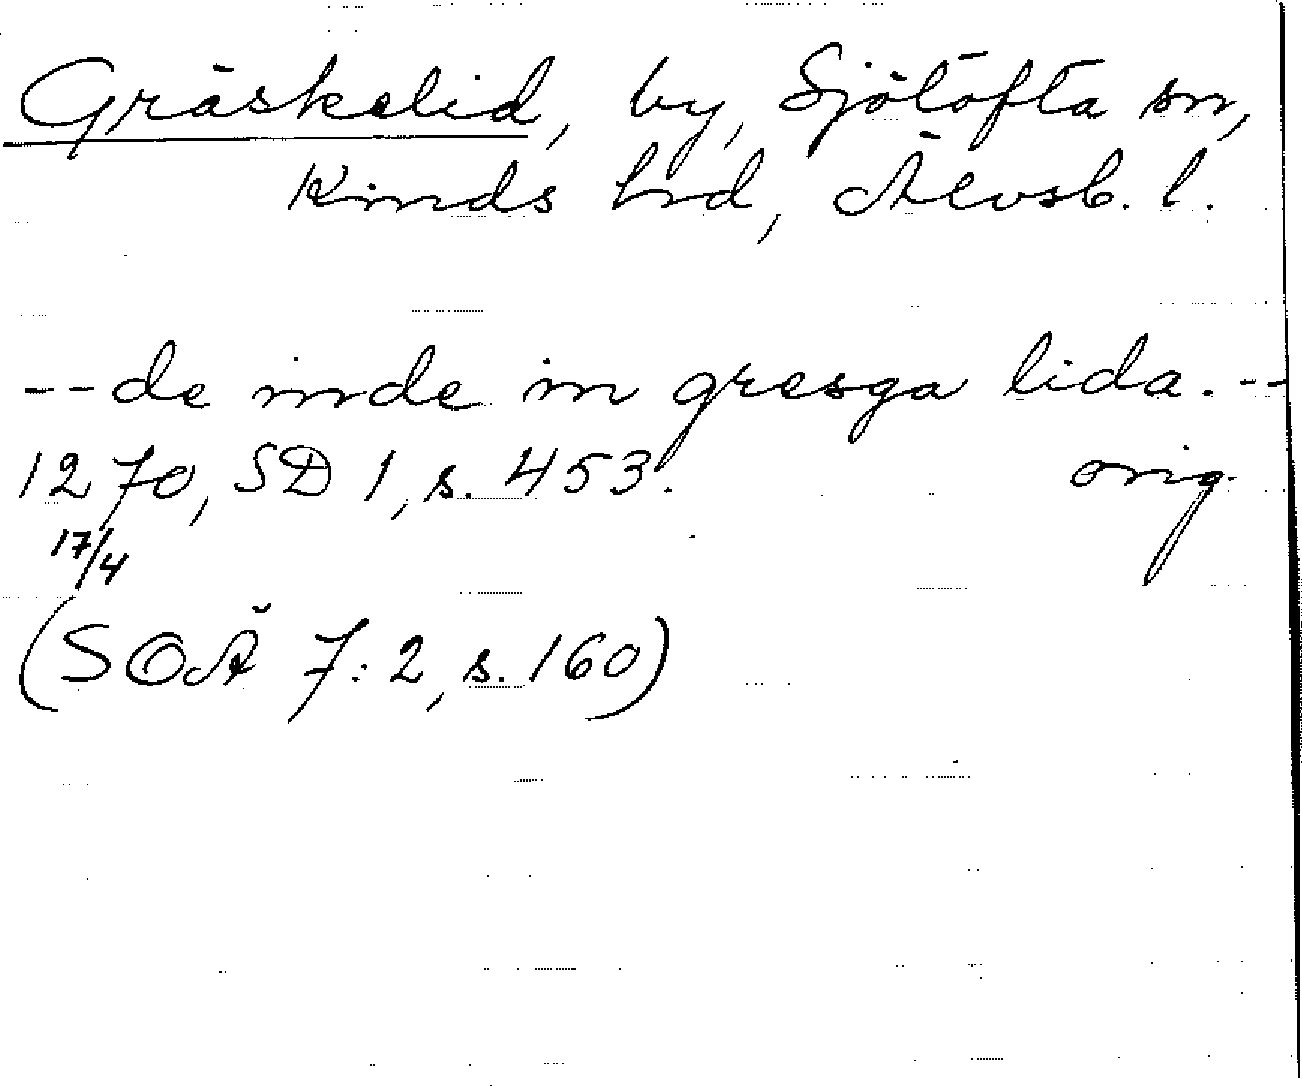 Gräskelid, by, Sjötofta sn,
Kinds hd, Älvsb. l.
-- de inde in gresga lida. --
1270, SD 1, s. 453. orig.
17/4
(SOÄ 7:2, s. 160)